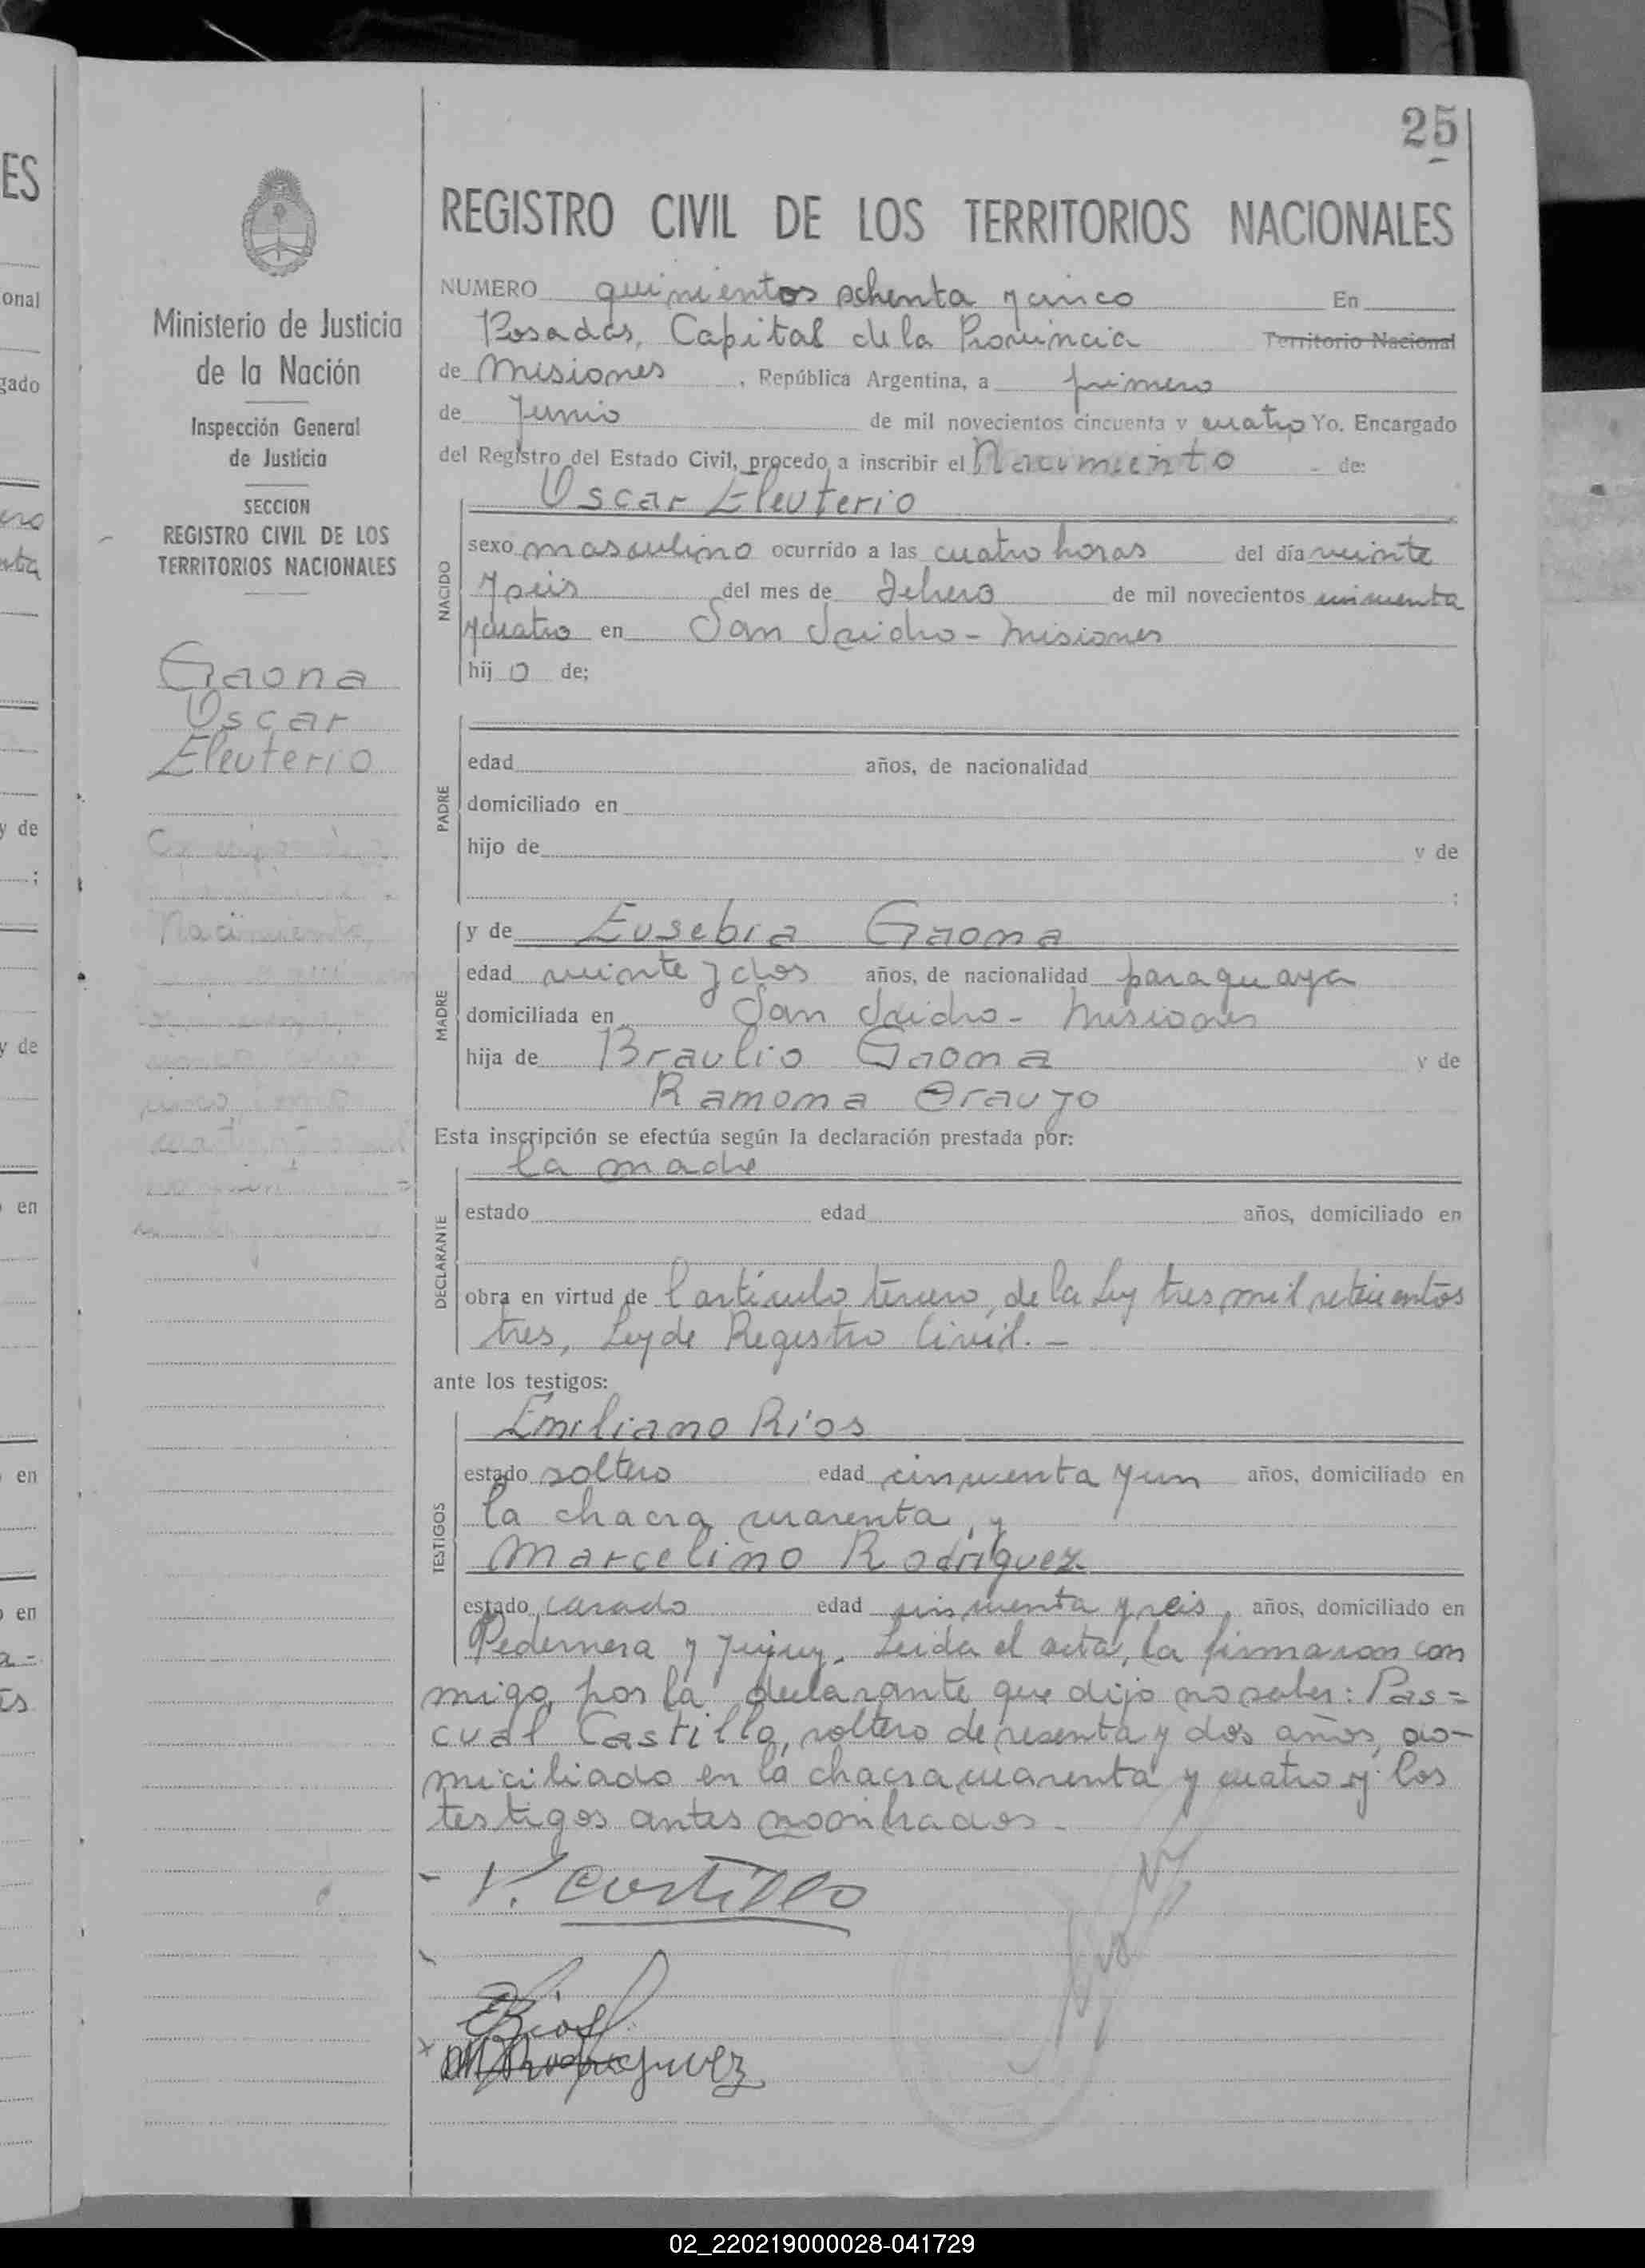 25
REGISTRO CIVIL DE LOS TERRITORIOS NACIONALES
NUMERO quinientos ochenta y cinco En
Posadas, Capital de la Provincia Territorio Nacional
de Misiones, República Argentina, a primero
de Junio de mil novecientos cincuenta y cuatro Yo. Encargado
del Registro del Estado Civil, procedo a inscribir el Nacimiento de:
Oscar Eleuterio
NACIDO
sexo masculino ocurrido a las cuatro horas del día veinte
y seis del mes de Febrero de mil novecientos cincuenta
y cuatro en San Isidro - Misiones
hij o de;
PADRE
edad años, de nacionalidad
domiciliado en
hijo de y de
;
MADRE
y de Eusebia Gaona
edad veinte y dos años, de nacionalidad paraguaya
domiciliada en San Isidro - Misiones
hija de Braulio Gaona y de
Ramona Araujo
Esta inscripción se efectúa según la declaración prestada por:
la madre
DECLARANTE
estado edad años, domiciliado en
obra en virtud de l artículo tercero, de la Ley tres mil setecientos
tres, Ley de Registro Civil. -
ante los testigos:
TESTIGOS
Emiliano Ríos
estado soltero edad cincuenta y un años, domiciliado en
la chacra cuarenta, y
Marcelino Rodríguez
estado casado edad cincuenta y seis, años, domiciliado en
Pedernera y Jujuy. Leida el acta, la firmaron con
migo, por la declarante que dijo no saber: Pas=
cual Castillo, soltero de sesenta y dos años, do-
miciliado en la chacra cuarenta y cuatro y los
testigos antes nombrados.
P. Castillo
E Rios
M Rodriguez
Ministerio de Justicia
de la Nación
Inspección General
de Justicia
SECCION
REGISTRO CIVIL DE LOS
TERRITORIOS NACIONALES
Gaona
Oscar
Eleuterio
Nacimiento
ES
onal
gado
y de
;
y de
en
en
en
02_220219000028-041729